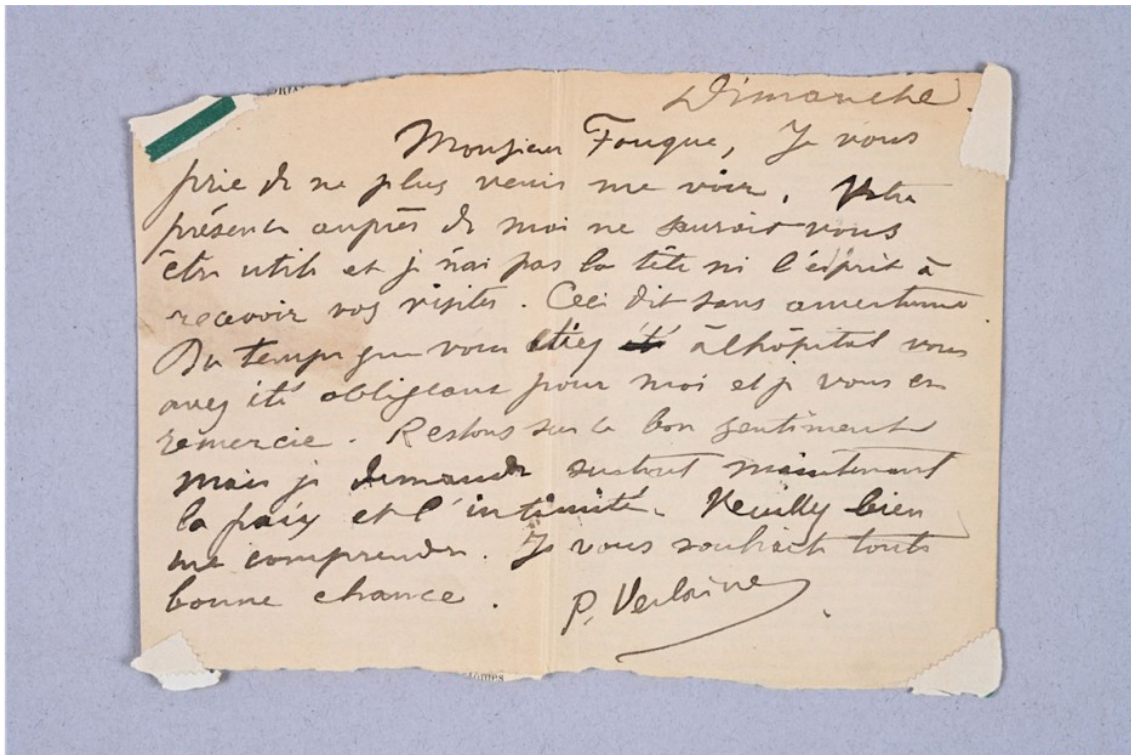 Dimanche.
Monsieur Fouque, Je vous
prie de ne plus venir me voir. Votre
présence auprès de moi ne saurait vous
être utile et je n'ai pas la tête ni l'esprit à
recevoir vos visites. Ceci dit sans amertume.
Du temps que vous étiez été à l'hôpital vous
avez été obligeant pour moi et je vous en
remercie. Restons sur ce bon sentiment
mais je demande surtout maintenant
la paix et l'intimité. Veuillez bien
me comprendre. Je vous souhaite toute
bonne chance.
P. Verlaine